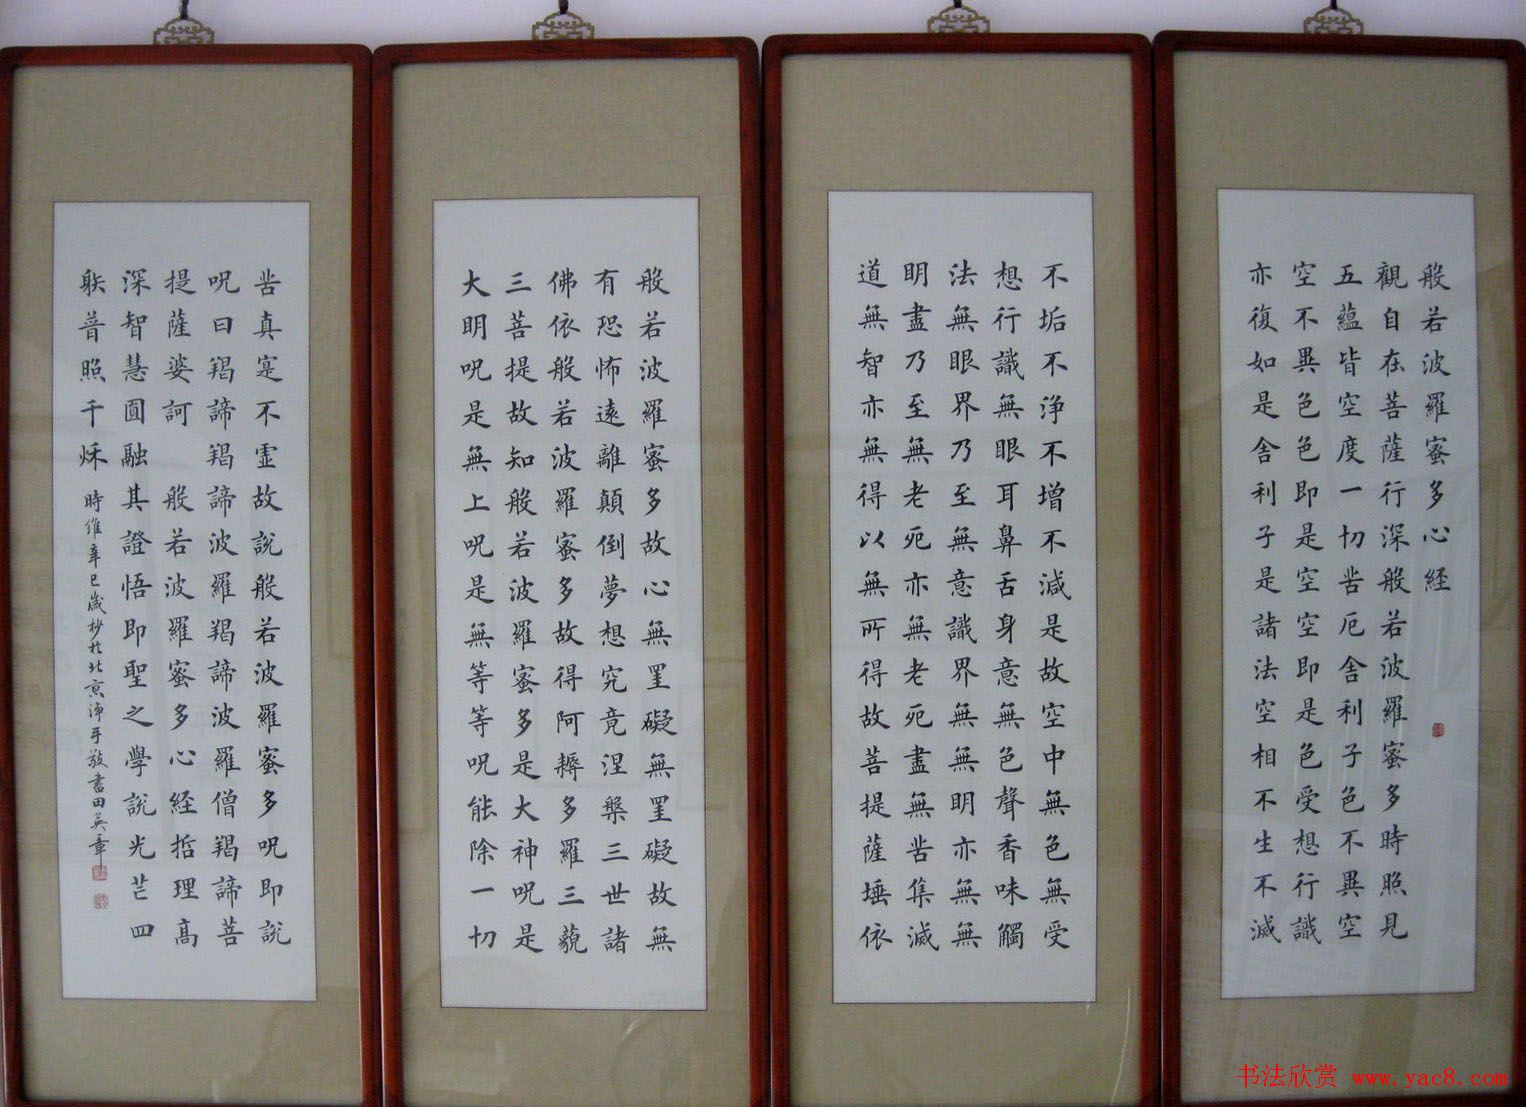 般若波羅蜜多心経
觀自在菩薩行深般若波羅蜜多時照見
五蘊皆空度一切苦厄舍利子色不異空
空不異色色即是空空即是色受想行識
亦復如是舍利子是諸法空相不生不滅
不垢不浄不增不減是故空中無色無受
想行識無眼耳鼻舌身意無色聲香味觸
法無眼界乃至無意識界無無明亦無無
明盡乃至無老死亦無老死盡無苦集滅
道無智亦無得以無所得故菩提薩埵依
般若波羅蜜多故心無罣礙無罣礙故無
有恐怖遠離顛倒夢想究竟涅槃三世諸
佛依般若波羅蜜多故得阿耨多羅三藐
三菩提故知般若波羅蜜多是大神呪是
大明呪是無上呪是無等等呪能除一切
苦真寔不虛故説般若波羅蜜多呪即説
呪曰羯諦羯諦波羅羯諦波羅僧羯諦菩
提薩婆訶 般若波羅蜜多心経哲理高
深智慧圓融其證悟即聖之學説光芒四
躲普照千穌 時維辛巳歲杪於北京淨手敬書田英章
书法欣赏 www.yac8.com